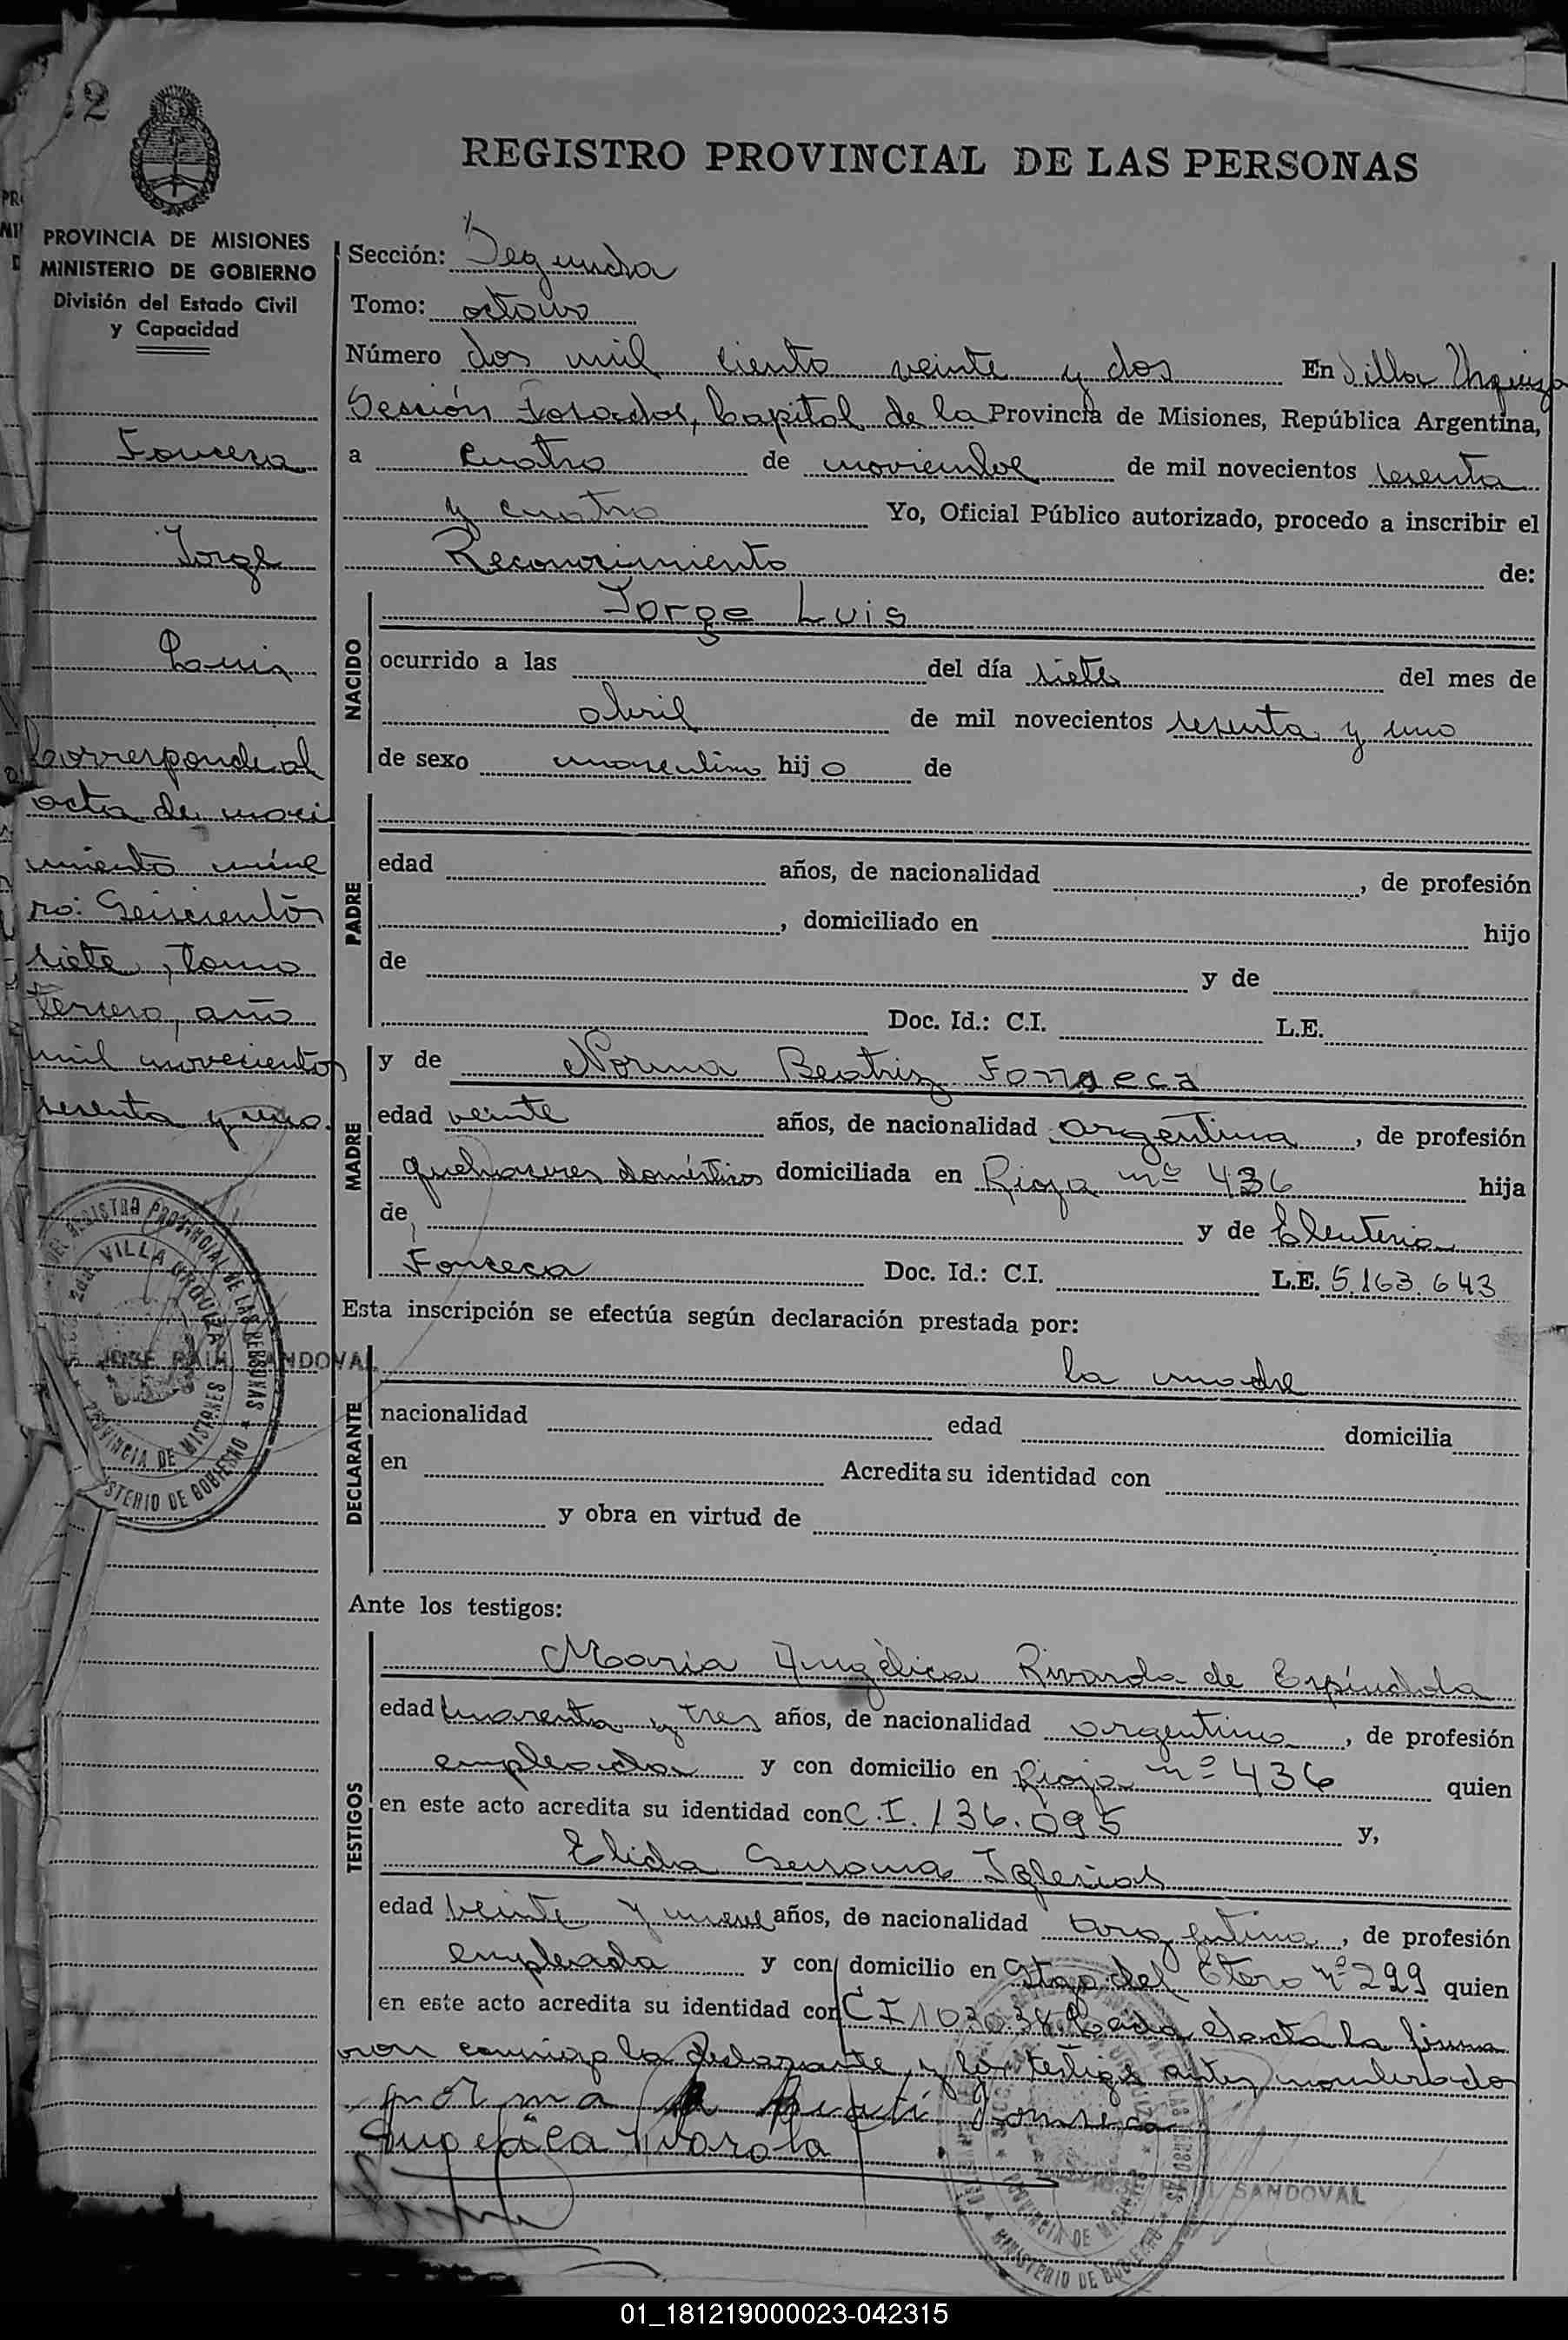 2
REGISTRO PROVINCIAL DE LAS PERSONAS
PROVINCIA DE MISIONES
MINISTERIO DE GOBIERNO
División del Estado Civil
y Capacidad
Fonseca
Jorge
Luis
Corresponde al
acta de naci
miento núme
ro: Seiscientos
siete, tomo
tercero, año
mil novecientos
sesenta y uno.
JOSE RAUL SANDOVAL
Sección: Segunda
Tomo: octavo
Número dos mil ciento veinte y dos En Villa Urquiza
Sección Posadas, Capital de la Provincia de Misiones, República Argentina,
a cuatro de noviembre de mil novecientos sesenta
y cuatro Yo, Oficial Público autorizado, procedo a inscribir el
Reconocimiento de:
NACIDO
Jorge Luis
ocurrido a las del día siete del mes de
abril de mil novecientos sesenta y uno
de sexo masculino hijo de
PADRE
edad años, de nacionalidad , de profesión
, domiciliado en hijo
de y de
Doc. Id.: C.I. L.E.
MADRE
y de Norma Beatriz Fonseca
edad veinte años, de nacionalidad argentina, de profesión
quehaceres domésticos domiciliada en Rioja nº 436 hija
de y de Eleuteria
Fonseca Doc. Id.: C.I. L.E. 5.163.643
Esta inscripción se efectúa según declaración prestada por:
DECLARANTE
la madre
nacionalidad edad domicilia
en Acredita su identidad con
y obra en virtud de
Ante los testigos:
TESTIGOS
Maria Angélica Rivarola de Espíndola
edad cuarenta y tres años, de nacionalidad argentina, de profesión
empleada y con domicilio en Rioja nº 436 quien
en este acto acredita su identidad con C.I. 136.095 y,
Elida Iglesias
edad veinte y nueve años, de nacionalidad argentina, de profesión
empleada y con domicilio en Stgo. del Estero nº 299 quien
en este acto acredita su identidad con C I 103038. Leida el acta la firma
ron conmigo la declarante y los testigos antes nombrados
norma Beati Fonseca
Angelica Rivarola
SANDOVAL
VILLA URQUIZA
PROVINCIA DE MISIONES
MINISTERIO DE GOBIERNO
01_181219000023-042315